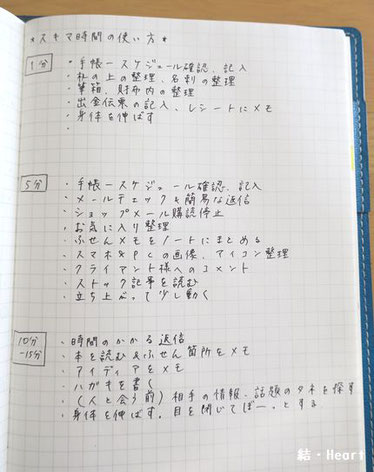 *スキマ時間の使い方*
1分
・手帳ースケジュール確認、記入
・机の上の整理、名刺の整理
・筆箱、財布内の整理
・出金伝票の記入、レシートにメモ
・身体を伸ばす
・
5分
・手帳ースケジュール確認、記入
・メールチェック&簡易な返信
・ショップメール購読停止
・お気に入り整理
・ふせんメモをノートにまとめる
・スマホ&PCの画像、アイコン整理
・クライアント様へのコメント
・ストック記事を読む
・立ち上がって少し動く
10分
-15分
・時間のかかる返信
・本を読む&ふせん箇所をメモ
・アイディアをメモ
・ハガキを書く
・(人と会う前)相手の情報、話題のタネを探す
・身体を伸ばす。目を閉じてぼーっとする
結・Heart